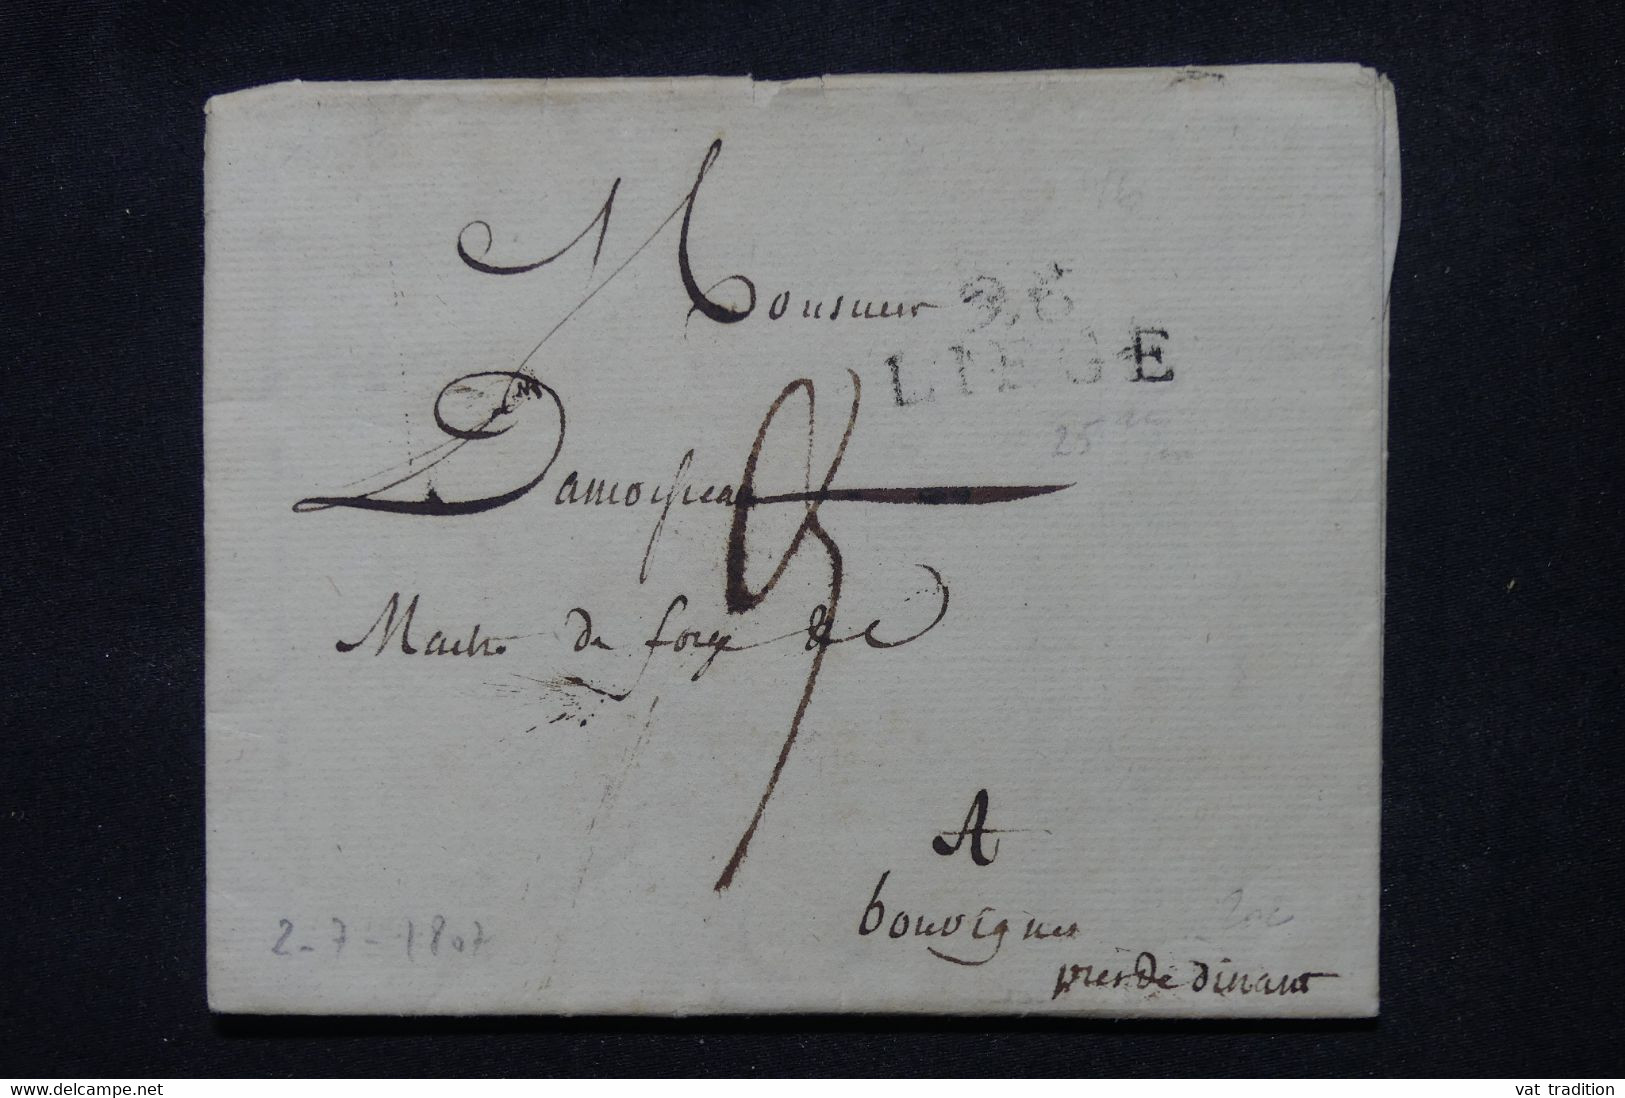 Monsieur
96
LIEGE
25
Damoiseau
Maitre de forge &c
A
bouvignes
près de dinant
2-7-1807
www.delcampe.net
vat tradition